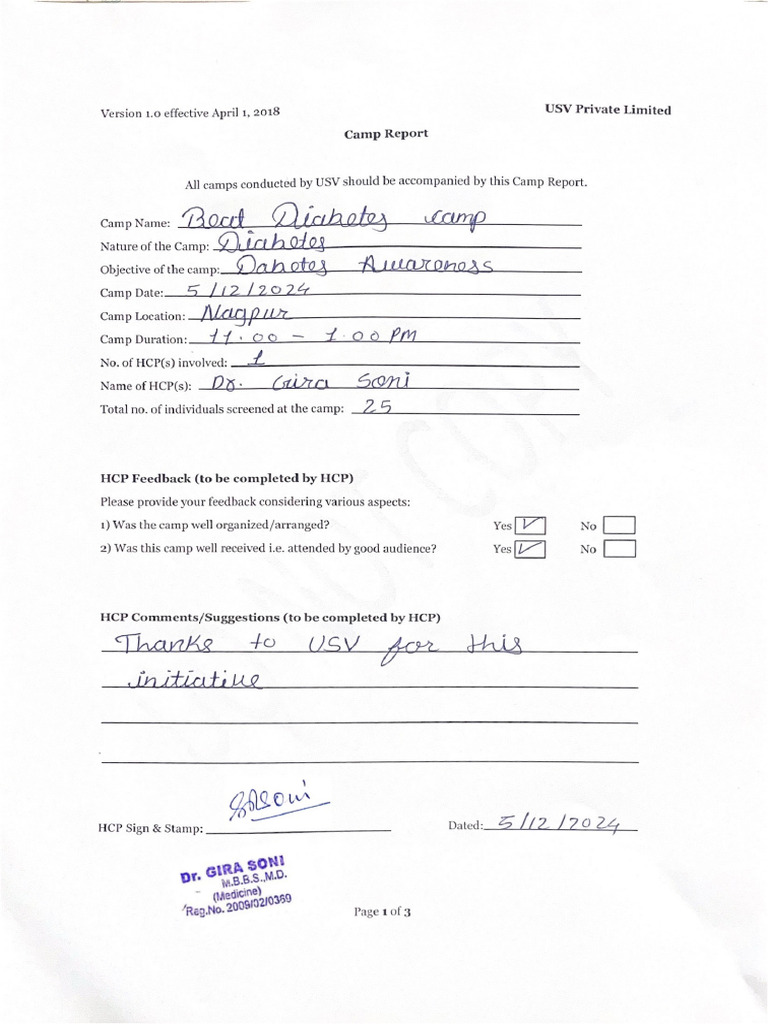 Version 1.0 effective April 1, 2018 USV Private Limited
Camp Report
All camps conducted by USV should be accompanied by this Camp Report.
Camp Name: Beat Diabetes camp
Nature of the Camp: Diabetes
Objective of the camp: Dabetes Awareness
Camp Date: 5/12/2024
Camp Location: Nagpur
Camp Duration: 11.00 - 1.00 PM
No. of HCP(s) involved: 1
Name of HCP(s): Dr. Gira Soni
Total no. of individuals screened at the camp: 25
HCP Feedback (to be completed by HCP)
Please provide your feedback considering various aspects:
1) Was the camp well organized/arranged? Yes ✓ No
2) Was this camp well received i.e. attended by good audience? Yes ✓ No
HCP Comments/Suggestions (to be completed by HCP)
Thanks to USV for this
initiative
GASoni
HCP Sign & Stamp: Dated: 5/12/2024
Dr. GIRA SONI
M.B.B.S.,M.D.
(Medicine)
Reg.No. 2009/02/0369
Page 1 of 3